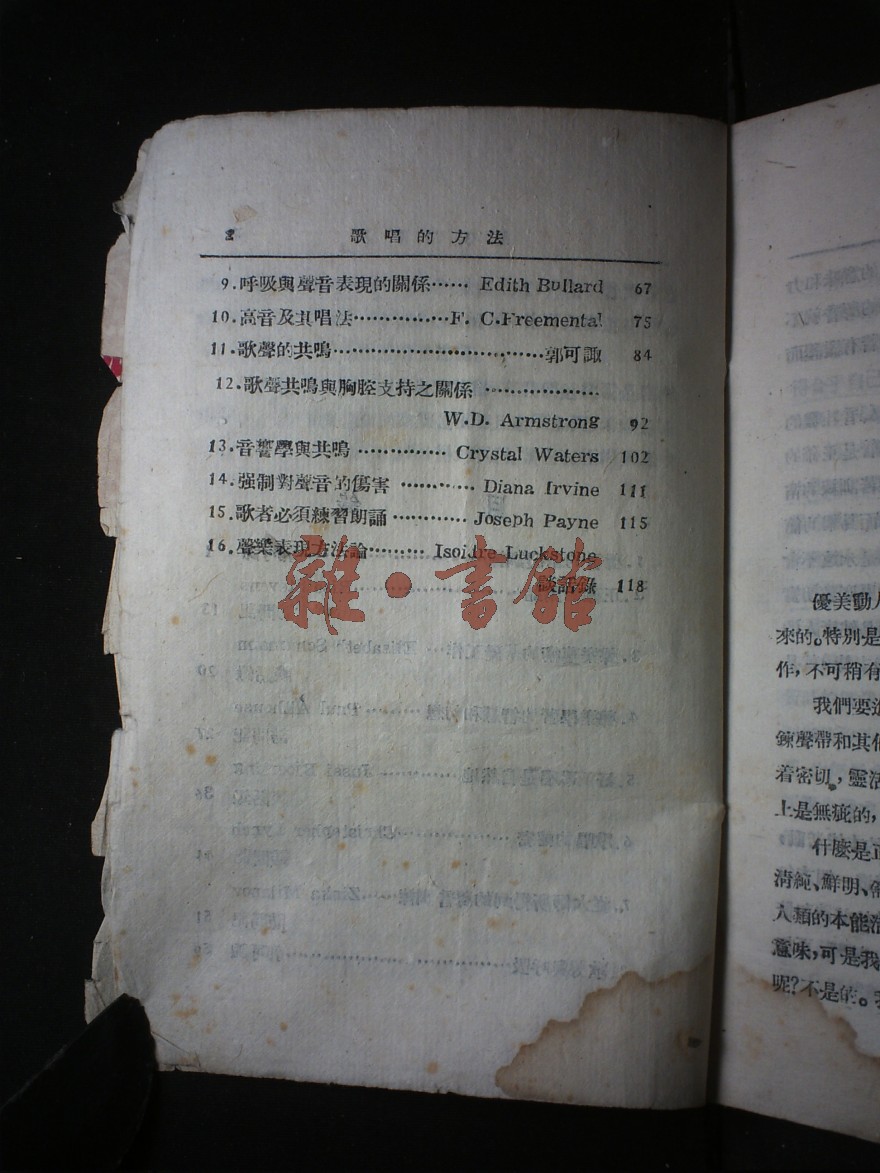 2 歌唱的方法
9.呼吸與聲音表現的關係…… Edith Bullard 67
10.高音及其唱法……………F. C.Freemental 75
11.歌聲的共鳴…………………………郭可諏 84
12.歌聲共鳴與胸腔支持之關係 ………………
W.D. Armstrong 92
13.音響學與共鳴 ………… Crystal Waters 102
14.强制對聲音的傷害 ………… Diana Irvine 111
15.歌者必須練習朗誦 ………… Joseph Payne 115
16.聲樂表現方法論……… Luckstone
談話錄 118
雜·書館
優美動人
來的。特別是
作,不可稍有
我們要
鍊聲帶和其他
着密切,靈活
上是無疵的,
什麼是正
淸純、鮮明、
人類的本能
意味,可是我
呢?不是的。